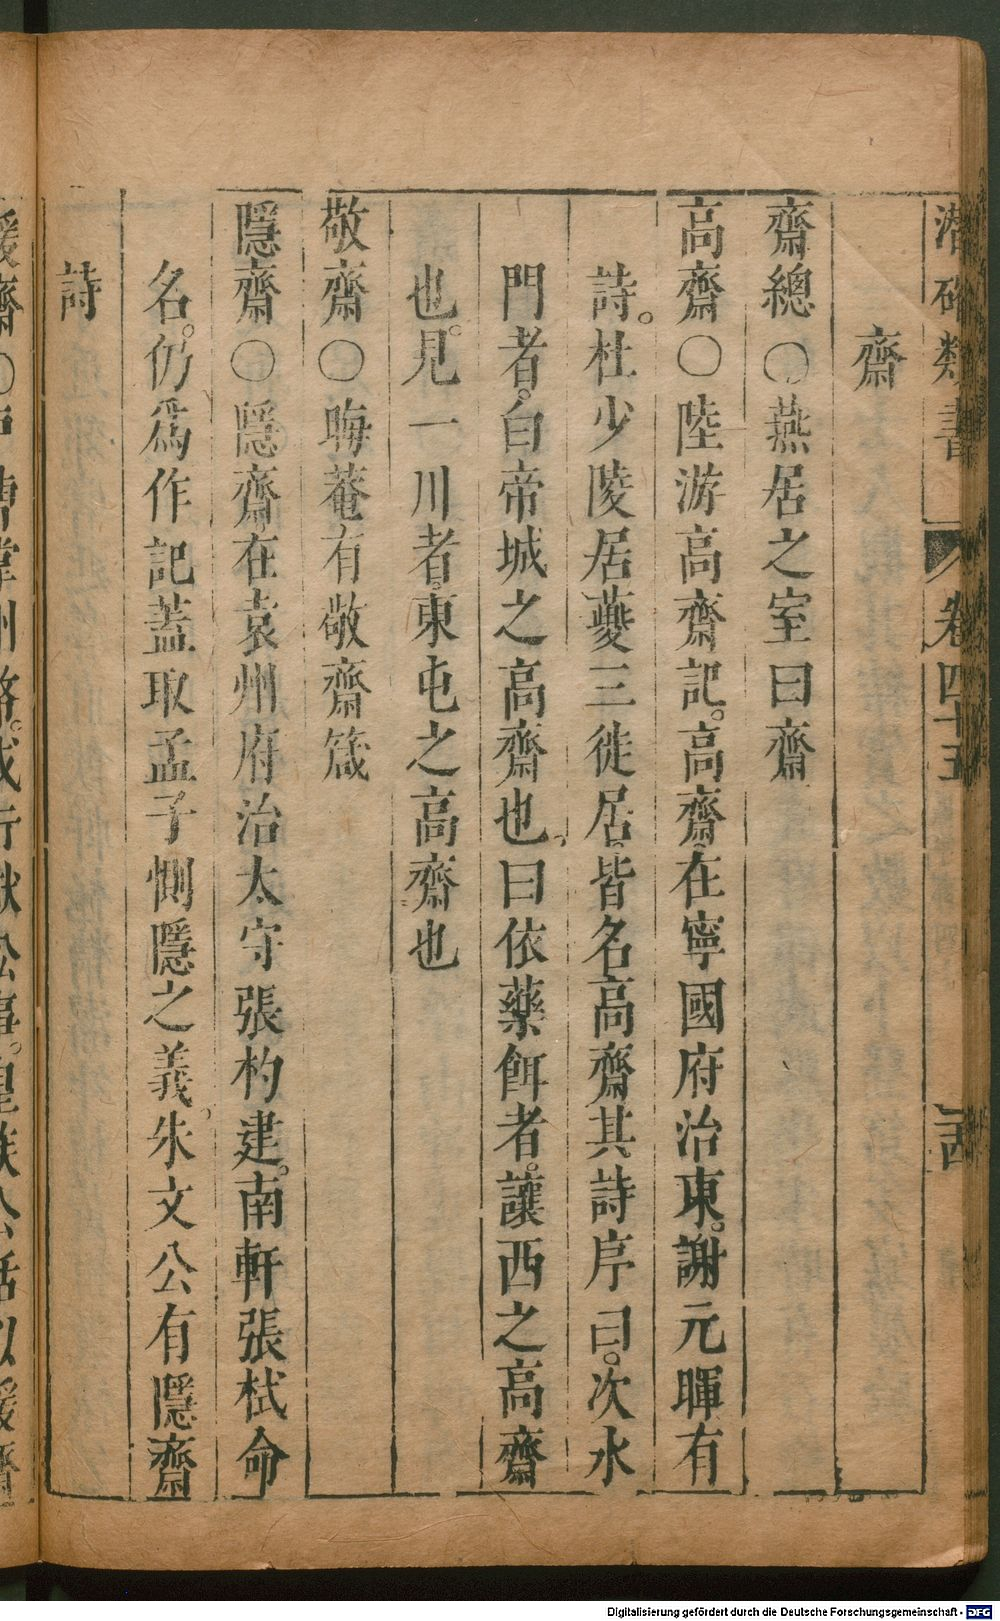 潛確類書 卷四十五
齋
齋總○燕居之室曰齋
高齋○陸游高齋記。高齋。在寧國府治東。謝元暉有
詩。杜少陵居夔三徙居。皆名高齋其詩序曰。次水
門者。白帝城之高齋也。曰依藥餌者。讓西之高齋
也。見一川者。東屯之高齋也
敬齋○晦菴有敬齋箴
隱齋○隱齋。在袁州府治太守張杓建。南軒張栻命
名。仍爲作記蓋取孟子惻隱之義。朱文公有隱齋
詩
Digitalisierung gefördert durch die Deutsche Forschungsgemeinschaft - DFG